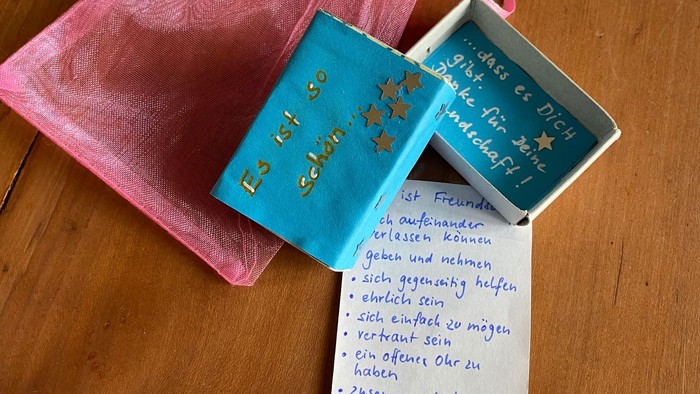 Es ist so
schön...
...dass es DICH
gibt.
Danke für Deine
Freundschaft!
ist Freundscha
ch aufeinander
verlassen können
geben und nehmen
• sich gegenseitig helfen
• ehrlich sein
• sich einfach zu mögen
• vertraut sein
• ein offenes Ohr zu
haben